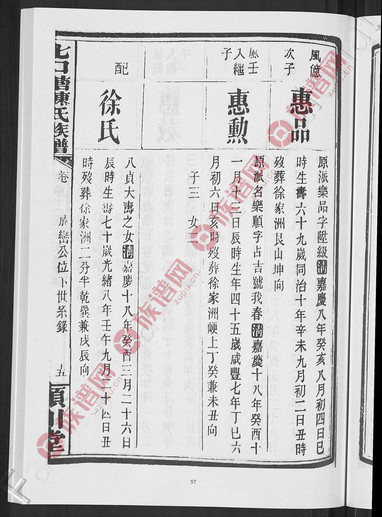 風億
次子
惠品
原派樂品字陞級清嘉慶八年癸亥八月初四日巳
時生壽六十九歲同治十年辛未九月初二日丑時
歿葬徐家洲艮山坤向
鳳壬
入繼
子
惠勳
原派名樂順字占吉號我春清嘉慶十八年癸酉十
一月十二日辰時生年四十五歲咸豐七年丁巳六
月初六日亥時歿葬徐家洲磡上丁癸兼未丑向
子三 女二
配
徐氏
八貞大壽之女清嘉慶十八年癸酉三月二十六日
辰時生壽七十歲光緒八年壬午九月二十四日丑
時歿葬徐家洲二分半乾巽兼戌辰向
七口塘陳氏族譜
卷
嵩巒公位下世系錄
五
潁川堂
57
族谱网
zupu.cn